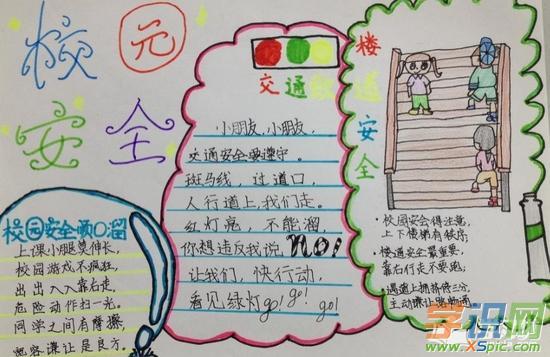 校园
安全
校园安全顺口溜
上课小腿莫伸长,
校园游戏不疯狂,
出出入入靠右走,
危险动作扫一光。
同学之间有摩擦,
宽容谦让是良方。
交通
小朋友,小朋友,
交通安全要遵守。
斑马线,过道口,
人行道上,我们走。
红灯亮,不能溜,
你想违反我说,NO!
让我们,快行动,
看见绿灯go! go! go!
楼道安全
·校园安全得注意,
上下楼梯有秩序;
·楼道安全最重要,
靠右行走不要跑;
·遇道上拥挤停三分,
主动谦让路畅通
学识网
XSpic.com